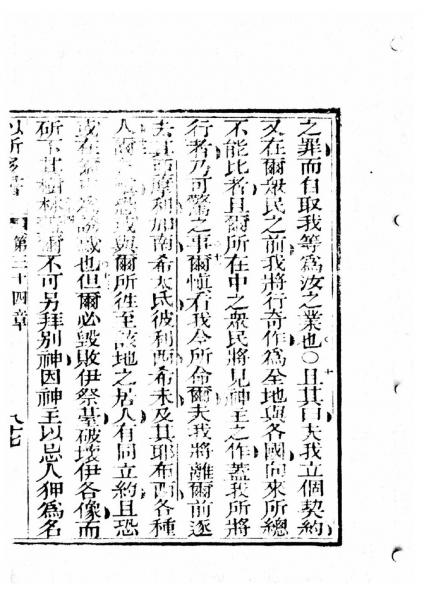 之罪而自取我等為汝之業也○且其曰夫我立個契約
又在爾眾民之前我將行奇作為全地與各國向來所總
不能比者且爾所在中之眾民將見神主之作蓋我所將
行者乃可驚之事爾慎看我今所命爾夫我將離爾前逐
去其亞摩利加南希太氐彼利西希未及其耶布西各種
人爾 慎 或與爾所徃至該地之居人有同立約且恐
或在爾 為 試也但爾必毀敗伊祭臺破壞伊各像而
斫下其樹林 爾不可另拜別神因神主以忌人狎為名
以所多書
第三十四章
九七